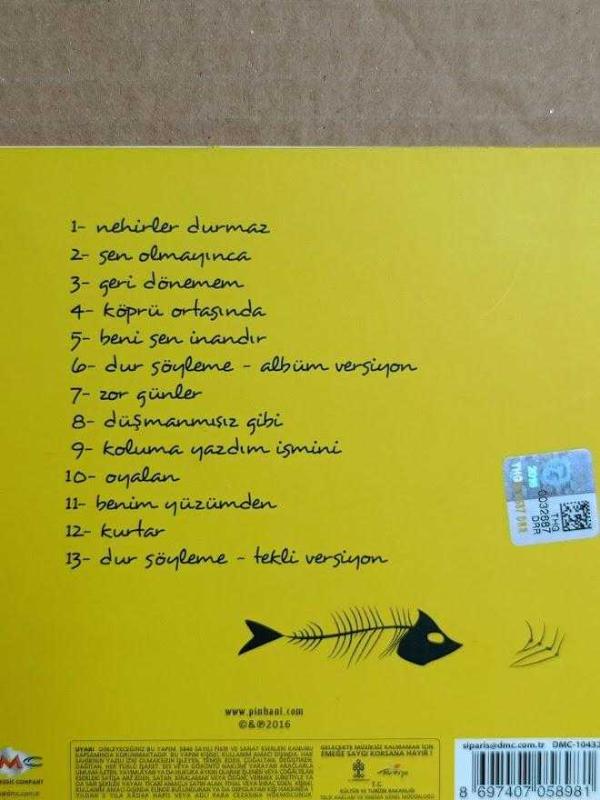 1- nehirler durmaz
2- sen olmayınca
3- geri dönemem
4- köprü ortasında
5- beni sen inandır
6- dur söyleme - albüm versiyon
7- zor günler
8- düşmanmışız gibi
9- koluma yazdım ismini
10- oyalan
11- benim yüzümden
12- kurtar
13- dur söyleme - tekli versiyon
0032687
THG
DAR
www.pinhani.com
©&℗2016
EMEĞE SAYGI KORSANA HAYIR!
Türkiye
T.C.
KÜLTÜR VE TURİZM BAKANLIĞI
siparis@dmc.com.tr DMC-10432
8 697407 058981